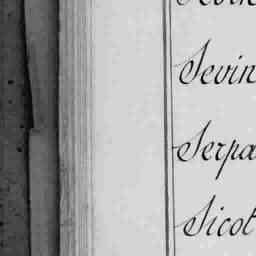 Sevin
Serpa
Sicot